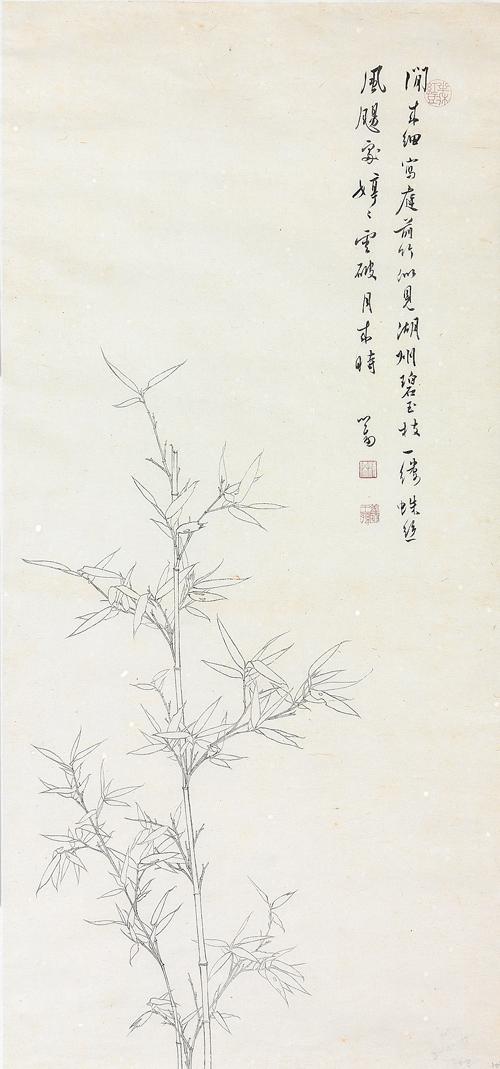 閒來細寫庭前竹似見湖州碧玉枝一縷蛛絲
風颺處婷〻雲破月來時 心畬
舊王孫